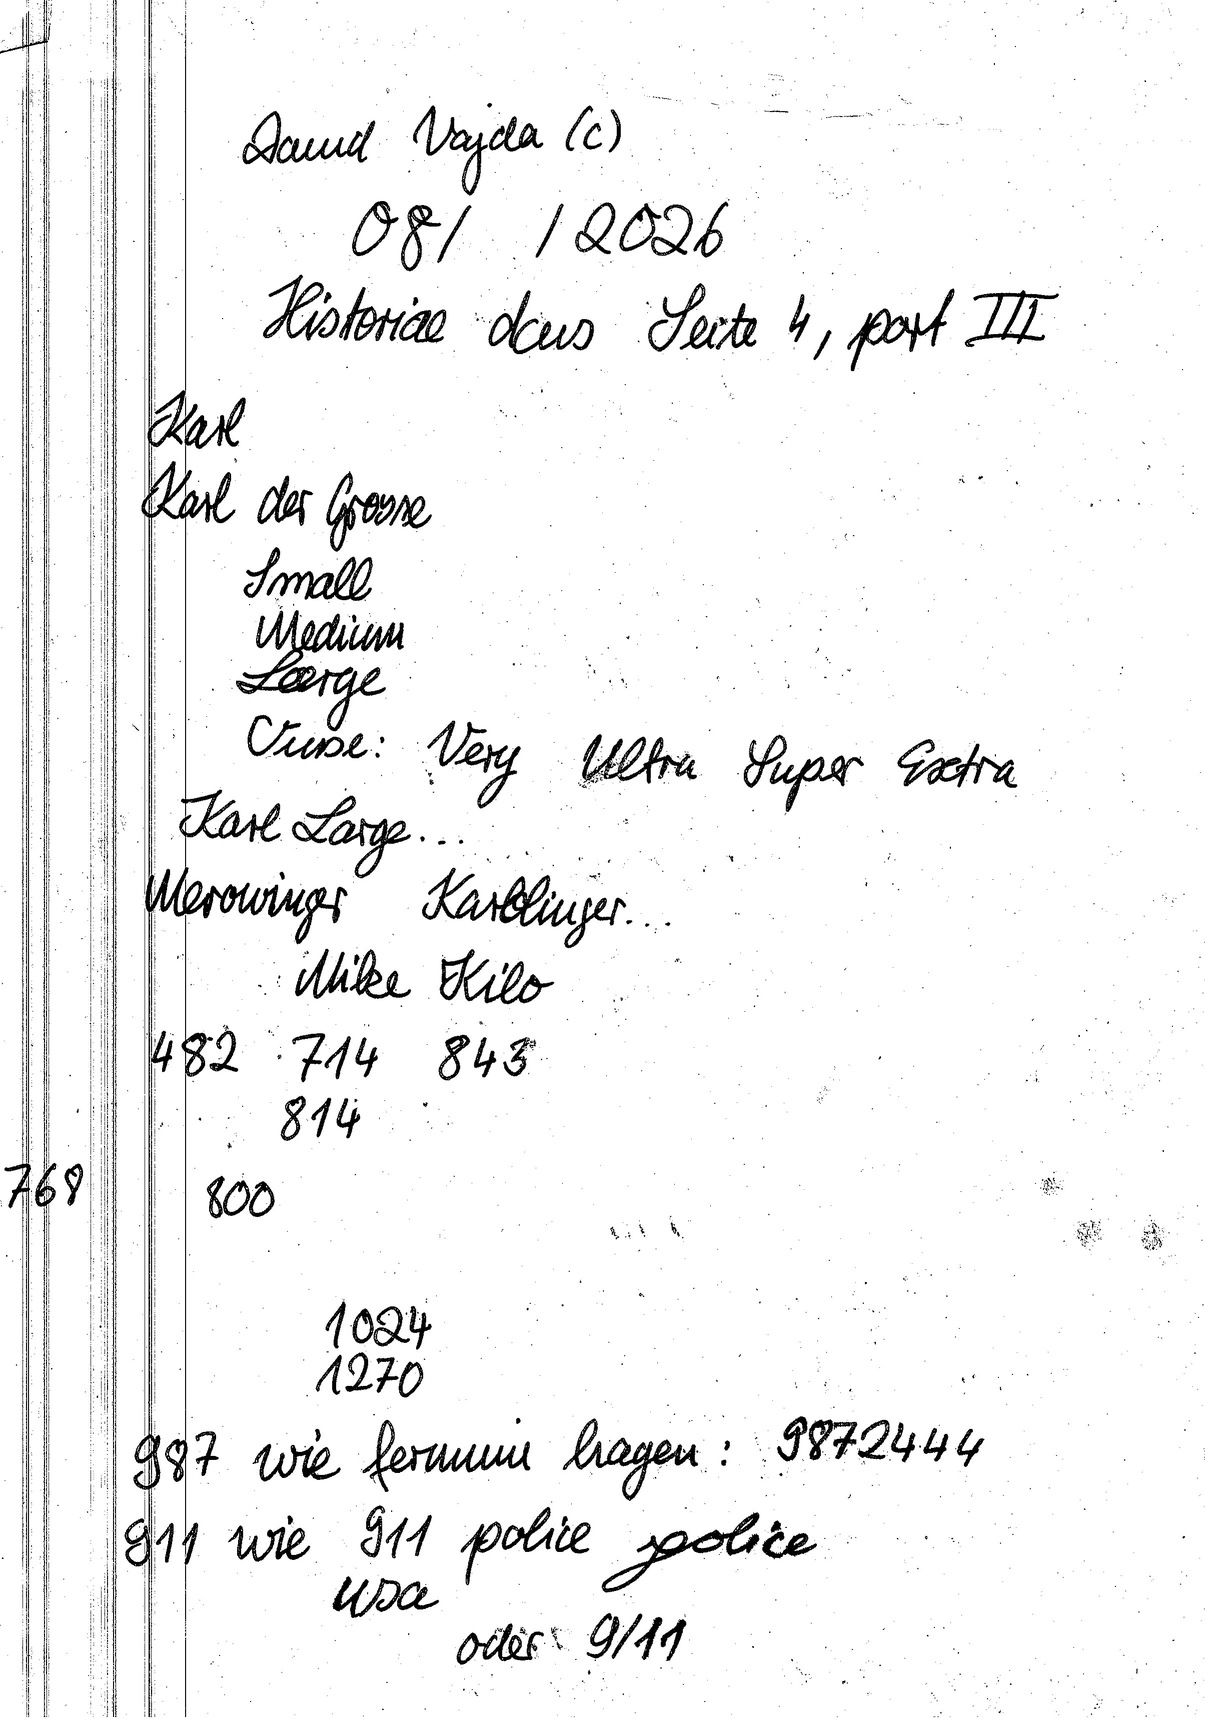 David Vajda (c)
08/ / 2026
Historiae dcus Seite 4, part III
Karl
Karl der Grosse
Small
Medium
Large
Vuse: Very Ultra Super Extra
Karl Large...
Merowinger Karolinger...
Mike Kilo
482 714 843
814
768 800
1024
1270
987 wie fernuni hagen: 9872444
911 wie 911 police police
usa
oder 9/11